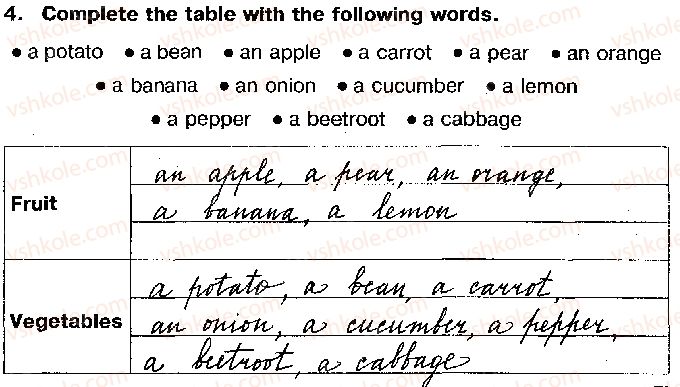 4. Complete the table with the following words.
• a potato • a bean • an apple • a carrot • a pear • an orange
• a banana • an onion • a cucumber • a lemon
• a pepper • a beetroot • a cabbage
an apple, a pear, an orange,
Fruit
a banana, a lemon
a potato, a bean, a carrot,
Vegetables
an onion, a cucumber, a pepper,
a beetroot, a cabbage
vshkole.com